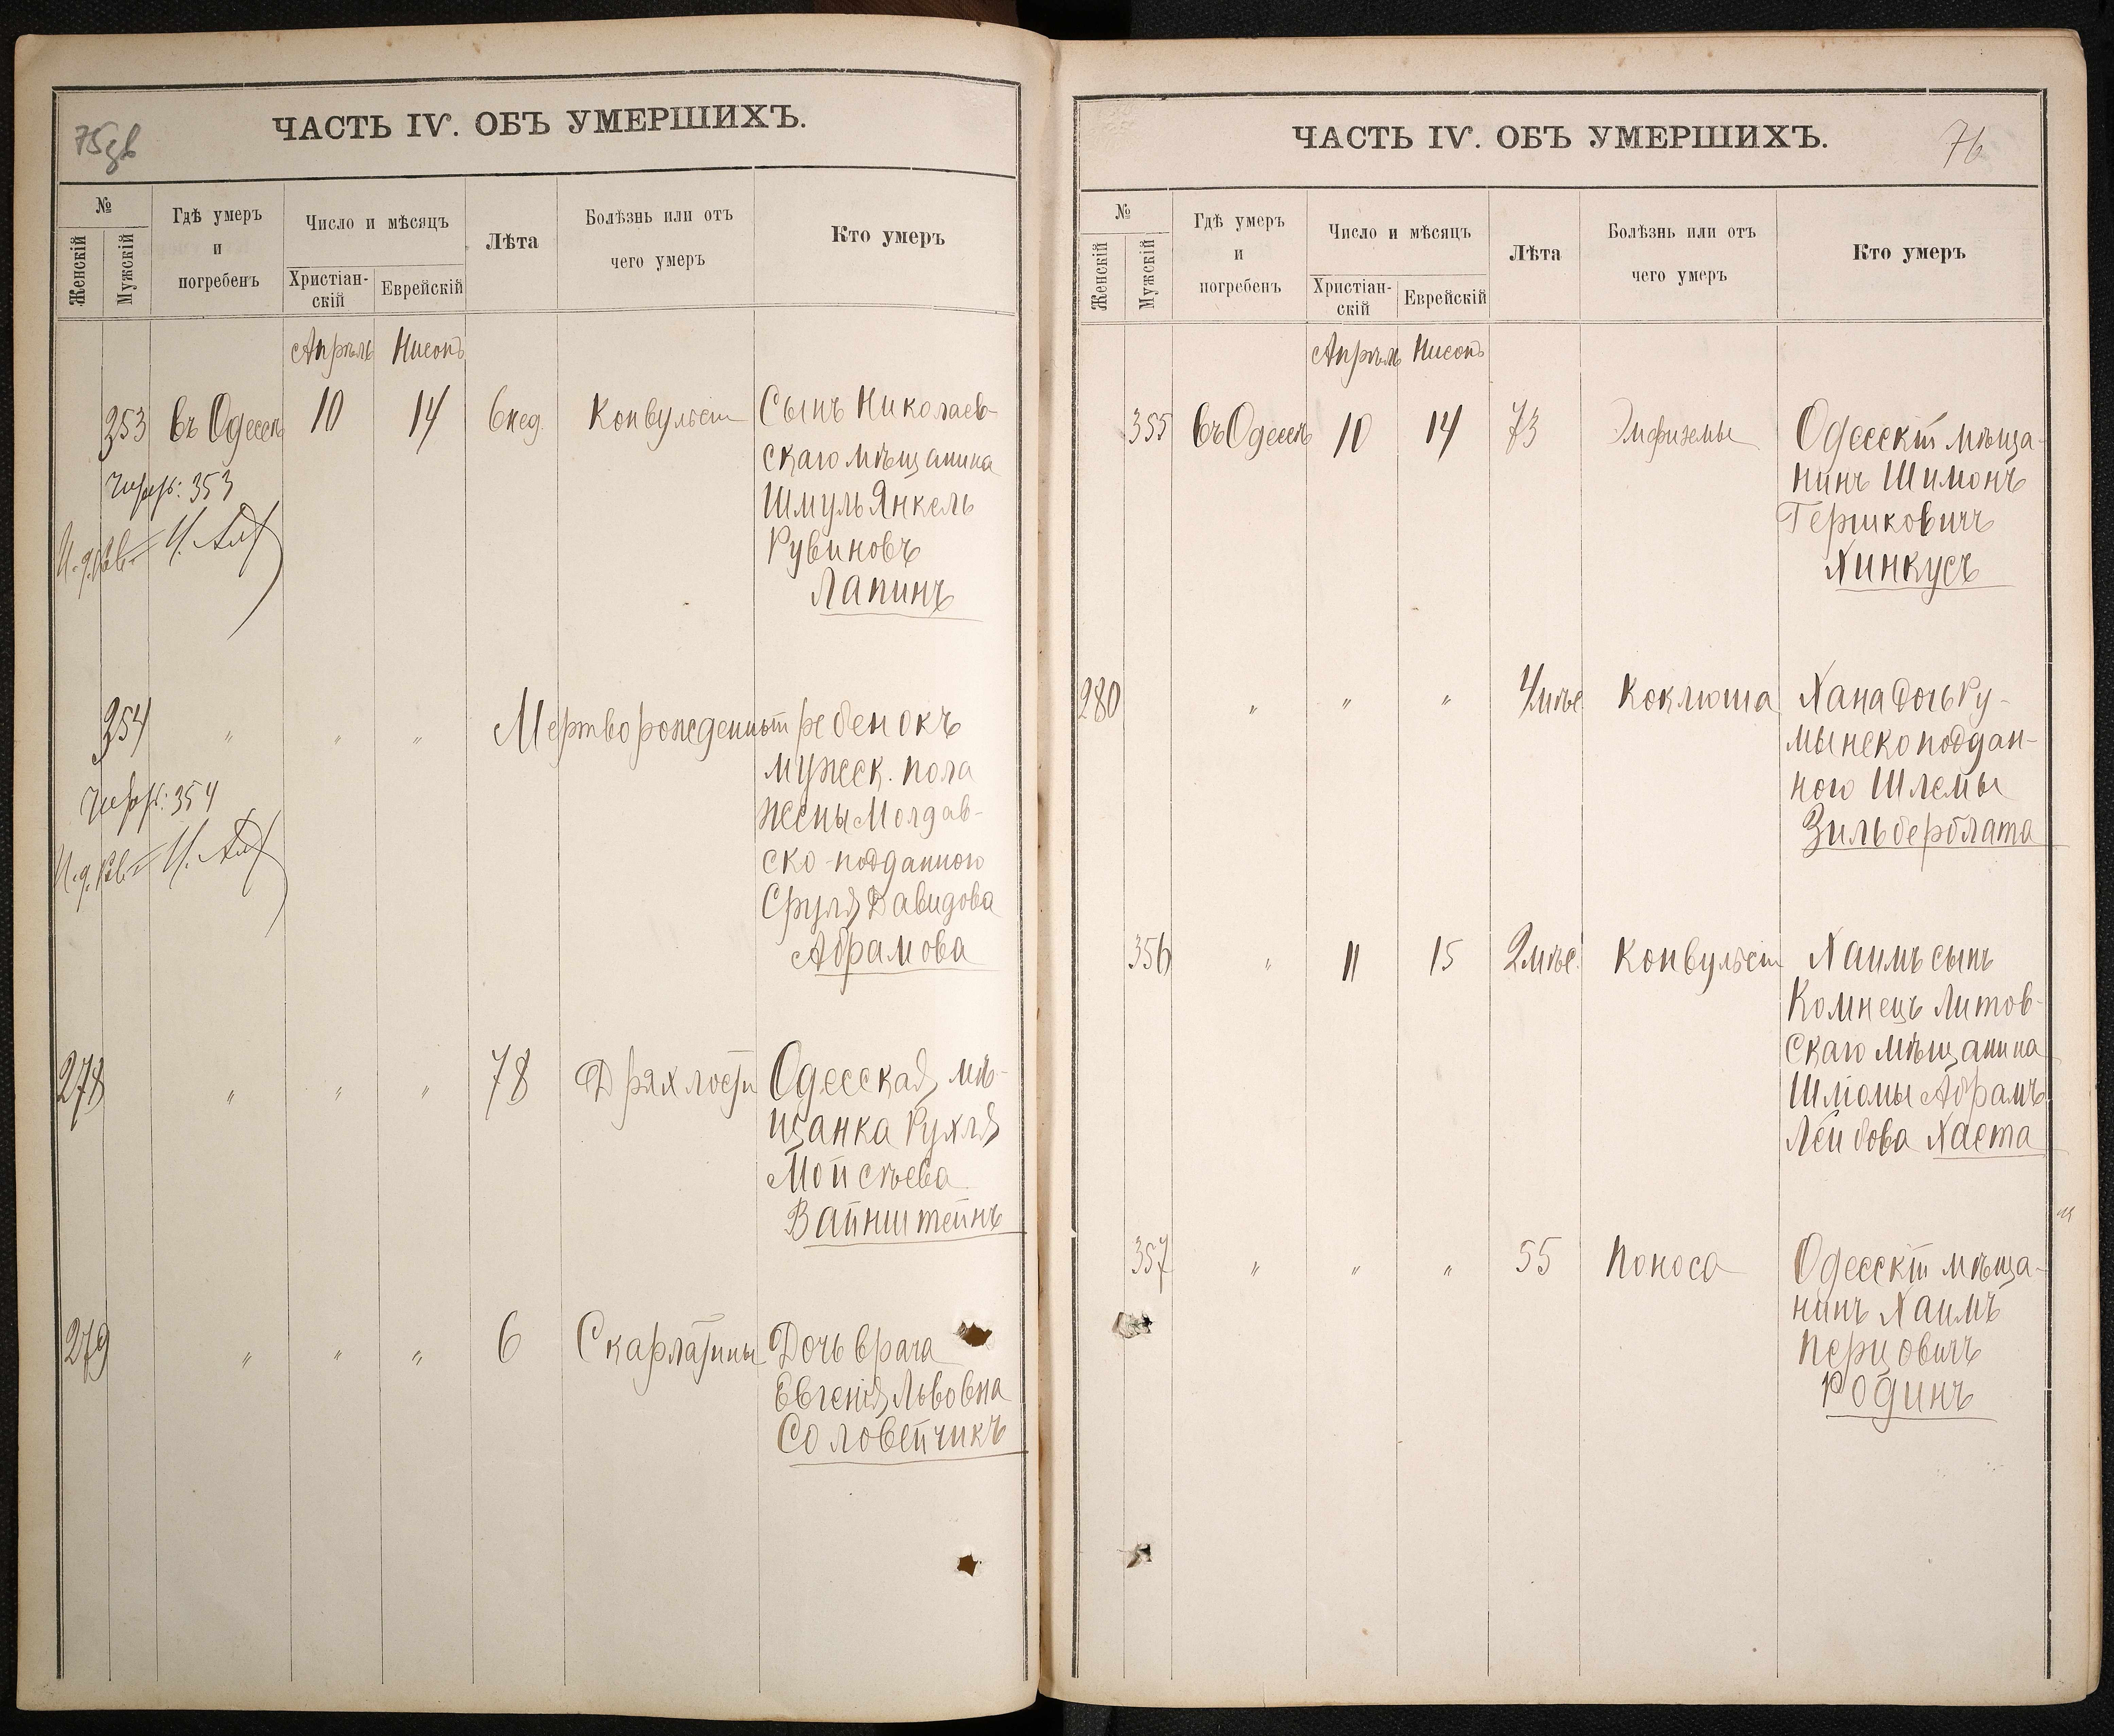 75
ЧАСТЬ IV. ОБЪ УМЕРШИХЪ.
№
Женскій
Мужскій
Гдѣ умеръ
и
погребенъ
Число и мѣсяцъ
Христіан-
скій
Еврейскій
Лѣта
Болѣзнь или отъ
чего умеръ
Кто умеръ
Апрѣль Нисонъ
353 въ Одессѣ 10 14 6 нед. Конвульсіи Сынъ Николаев-
скаго мѣщанина
Шмуль Янкель
Рувиновъ
Лапинъ
353
354 " " " Мертворожденный ребенокъ
мужеск. пола
жены Молдав-
ско-подданного
Сруля Давидова
Абрамова
354
278 " " " 78 Дряхлости Одесская мѣ-
щанка Рухля
Мойсѣева
Вайнштейнъ
279 " " " 6 Скарлатины Дочь врача
Евгенія Львовна
Соловейчикъ
76
ЧАСТЬ IV. ОБЪ УМЕРШИХЪ.
№
Женскій
Мужскій
Гдѣ умеръ
и
погребенъ
Число и мѣсяцъ
Христіан-
скій
Еврейскій
Лѣта
Болѣзнь или отъ
чего умеръ
Кто умеръ
Апрѣль Нисонъ
355 въ Одессѣ 10 14 73 Эмфиземы Одесскій мѣща-
нинъ Шимонъ
Гершковичъ
Хинкусъ
280 " " " 4 мѣс. Коклюша Хана дочь Ру-
мынско поддан-
ного Шлемы
Зильберблата
356 " 11 15 2 мѣс. Конвульсіи Хаимъ сынъ
Комнецъ Литов-
скаго мѣщанина
Шліомы Абрамъ
Лейбова Хаста
357 " " " 55 Поноса Одесскій мѣща-
нинъ Хаимъ
Перцовичъ
Родинъ